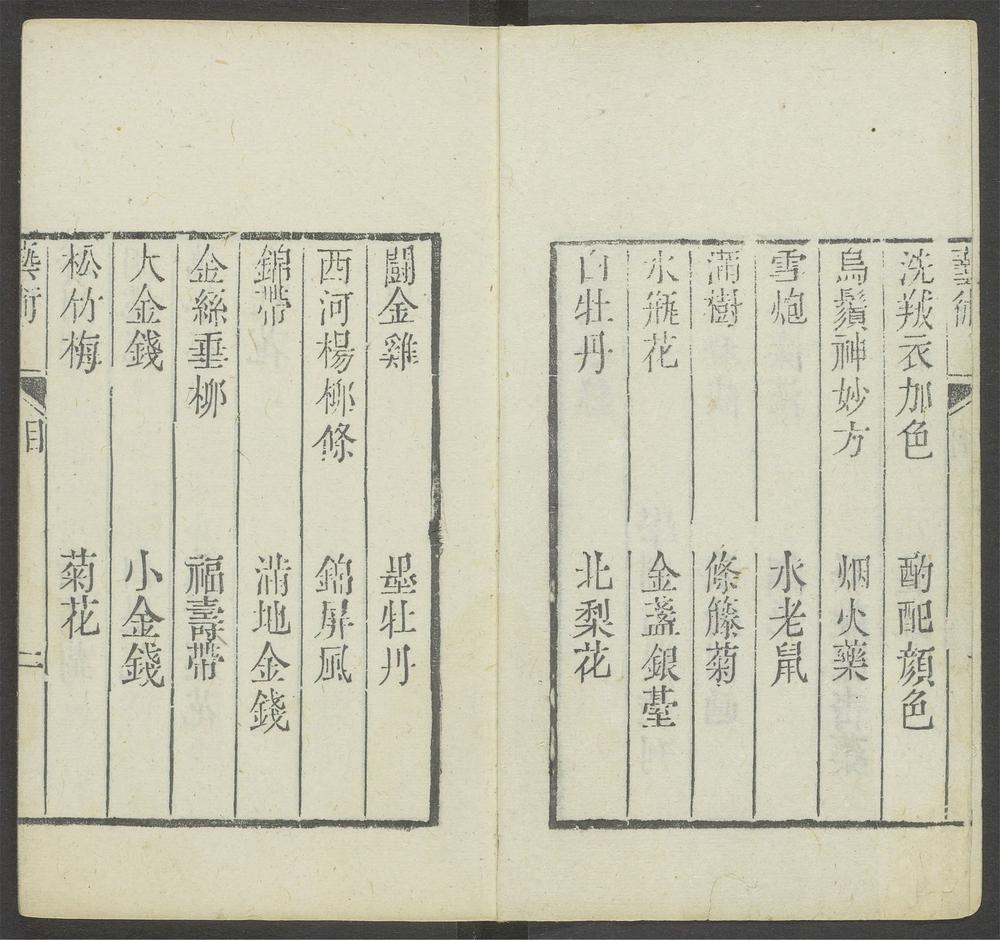 藝術
洗羢衣加色　酌配顏色
烏鬚神妙方　烟火藥
雪炮　水老鼠
滿樹　條籐菊
水瓶花　金盞銀臺
白牡丹　北梨花
鬪金雞　墨牡丹
西河楊柳條　錦屏風
錦帶　滿地金錢
金絲垂柳　福壽帶
大金錢　小金錢
松竹梅　菊花
藝術　目　二